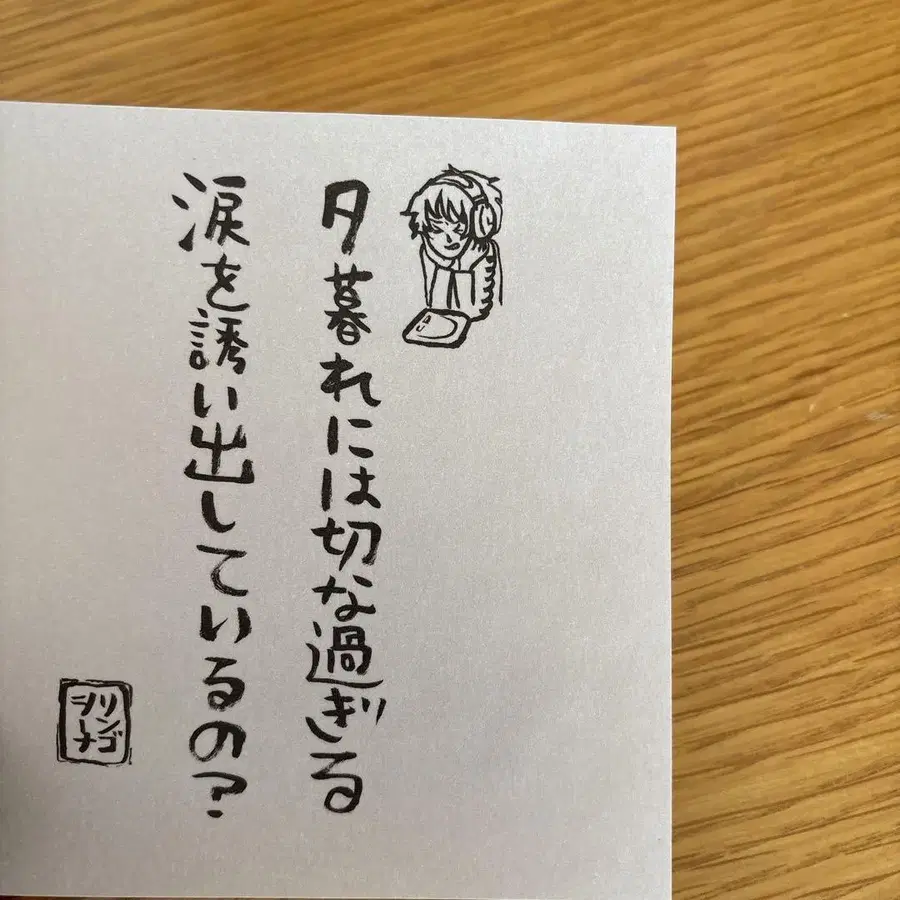 夕暮れには切な過ぎる
涙を誘い出しているの？
リンゴ
シーナ